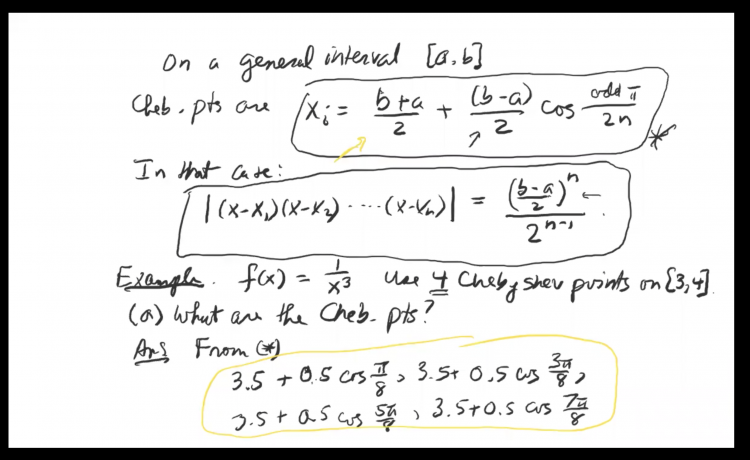 On a general interval [a,b]
Cheb. pts are x_i = (b+a)/2 + (b-a)/2 cos (odd π)/(2n) *
In that case:
|(x-x_1)(x-x_2)·····(x-x_n)| = ((b-a)/2)^n / 2^(n-1)
Example. f(x) = 1/x^3 use 4 Chebyshev points on [3,4]
(a) What are the Cheb. pts?
Ans From (*)
3.5 + 0.5 cos π/8, 3.5 + 0.5 cos 3π/8,
3.5 + 0.5 cos 5π/8, 3.5 + 0.5 cos 7π/8